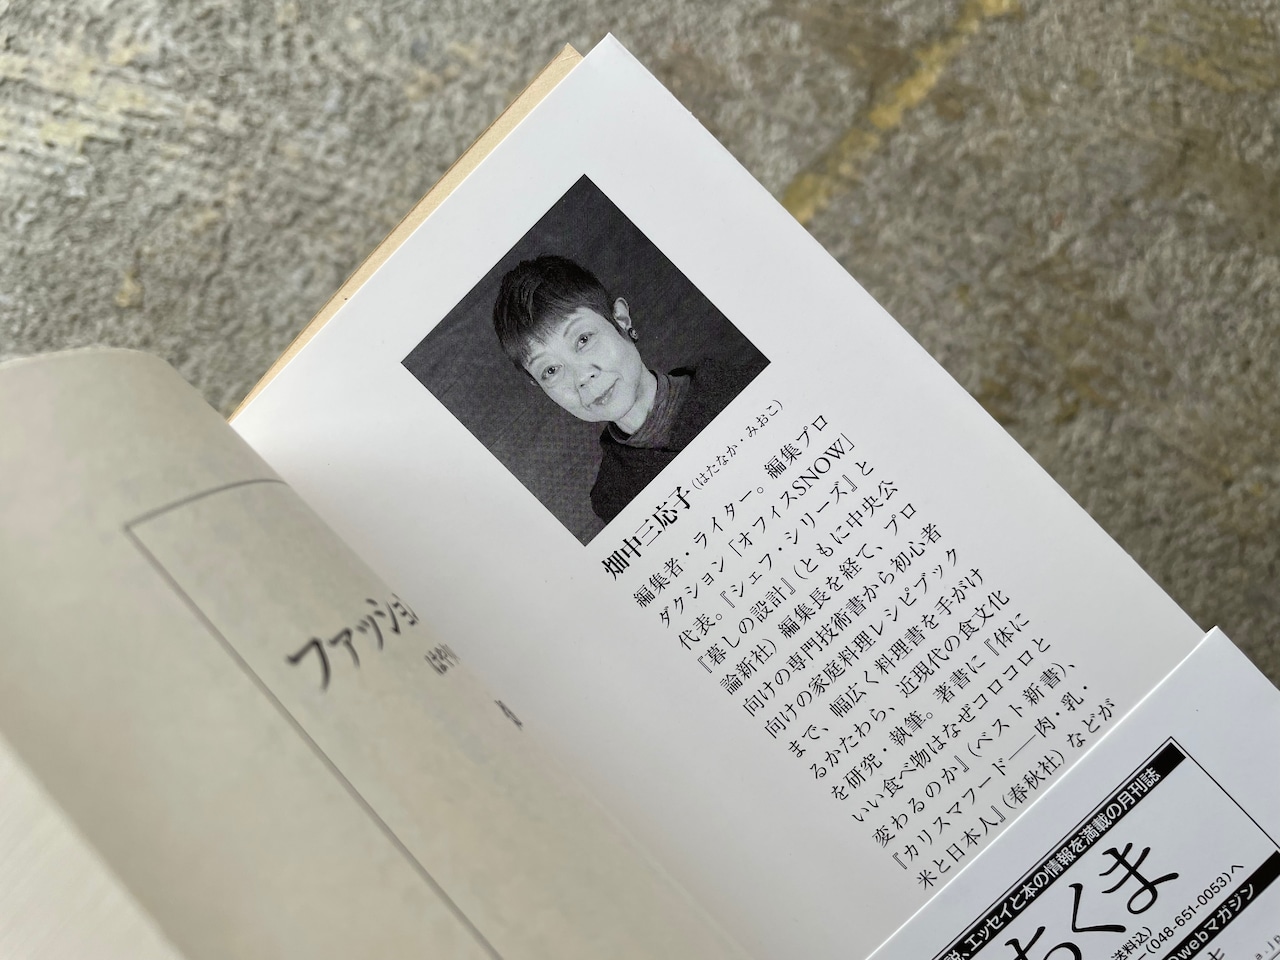 ファッショ
はや
畑中三応子(はたなか・みおこ)
編集者・ライター。編集プロ
ダクション「オフィスSNOW」
代表。『シェフ・シリーズ』と
『暮しの設計』(ともに中央公
論新社)編集長を経て、プロ
向けの専門技術書から初心者
向けの家庭料理レシピブック
まで、幅広く料理書を手がけ
るかたわら、近現代の食文化
を研究・執筆。著書に『体に
いい食べ物はなぜコロコロと
変わるのか』(ベスト新書)、
『カリスマフード──肉・乳・
米と日本人』(春秋社)などが
説、エッセイと本の情報を満載の月刊誌
ちくま
送料込)
(048-651-0053)へ
webマガジン
a.jp